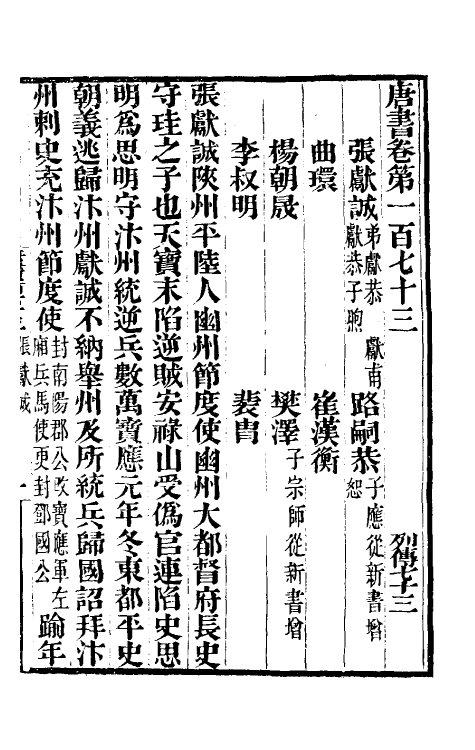 唐書卷第一百七十三　列傳七十三
張獻誠 弟獻恭 獻甫 獻恭子煦　路嗣恭 子應從新書增 恕
曲環　崔漢衡
楊朝晟　樊澤 子宗師從新書增
李叔明　裴胄
張獻誠陝州平陸人幽州節度使幽州大都督府長史
守珪之子也天寶末陷逆賊安祿山受僞官連陷史思
明爲思明守汴州統逆兵數萬寶應元年冬東都平史
朝義逃歸汴州獻誠不納舉州及所統兵歸國詔拜汴
州刺史充汴州節度使 封南陽郡公改寶應軍左廂兵馬使更封鄧國公 踰年
張獻誠 一